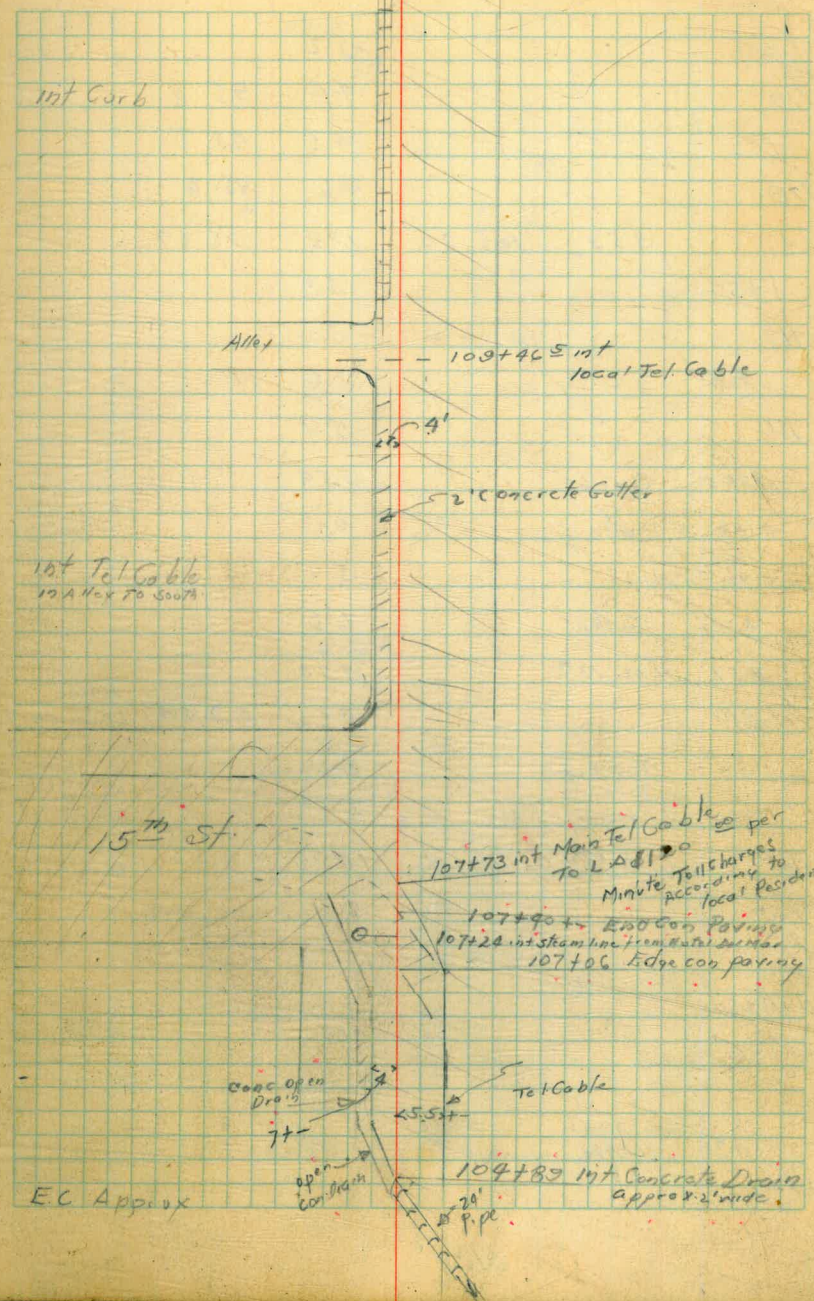 int Curb
Alley
109+46⁵ int
local Tel. Cable
4'
2' Concrete Gutter
int Tel Cable
in Alley To South
15th St.
107+73 int Main Tel Cable
To L.A. per
Minute Toll Charges
According to
local Residen
107+90 +- End Con Paving
107+24 int steam line from Hotel Del Mar
107+06 Edge con paving
conc open
Drain
4'
7+-
5.5+-
Tel Cable
open
con. drain
104+89 int Concrete Drain
approx. 2' wide
E.C. Approx
pipe